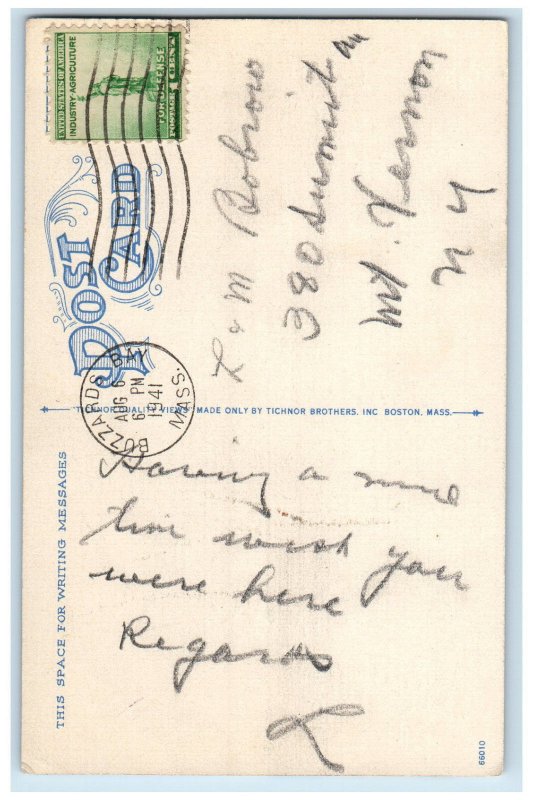 UNITED STATES OF AMERICA
INDUSTRY AGRICULTURE
FOR DEFENSE
POSTAGE 1 CENT
POST CARD
BUZZARDS BAY
AUG 6
6 PM
1941
MASS.
L & M Bobrow
380 Summit Av
Mt. Vernon
N Y
"TICHNOR QUALITY VIEWS," MADE ONLY BY TICHNOR BROTHERS, INC BOSTON, MASS.
THIS SPACE FOR WRITING MESSAGES
Having a nice
time wish you
were here
Regards
L
66010